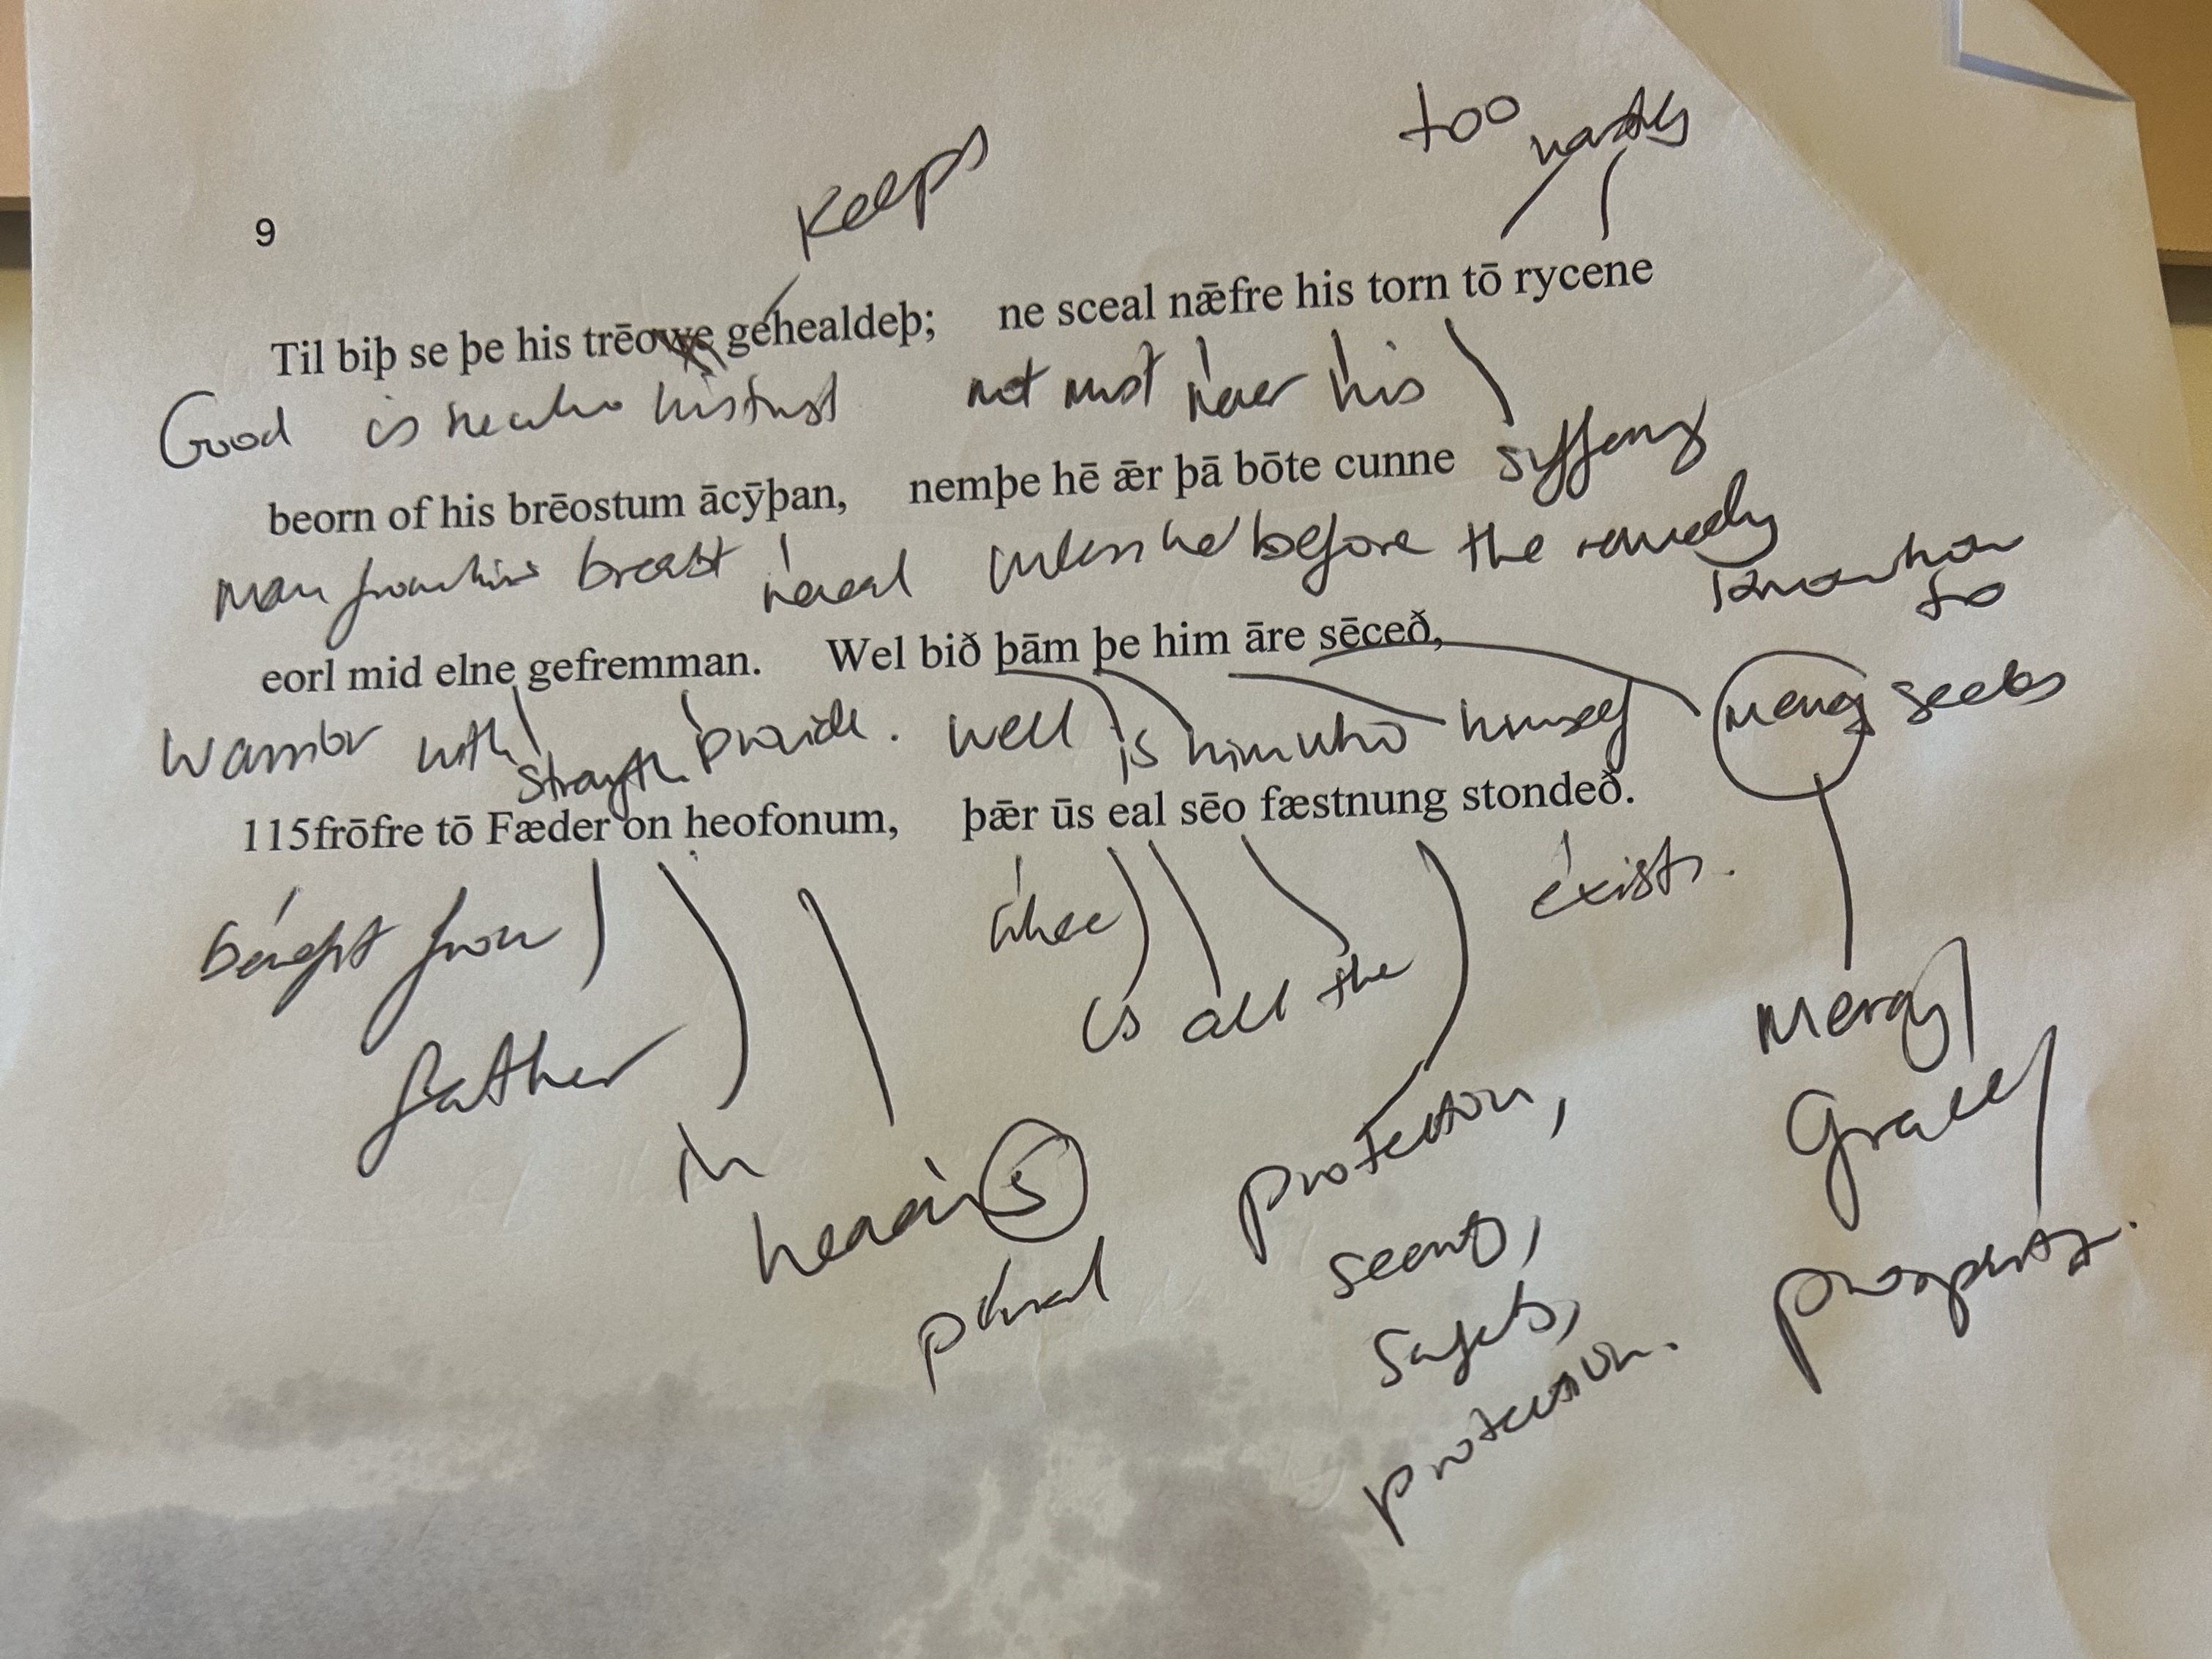 too hastily
Keeps
9
Til biþ se þe his trēowe gehealdeþ; ne sceal nǣfre his torn tō rycene
Good is he who his trust not must never his
suffering
beorn of his brēostum ācȳþan, nemþe hē ǣr þā bōte cunne
man from his breast reveal unless he before the remedy
know how
to
eorl mid elne gefremman. Wel bið þām þe him āre sēceð,
warrior with strength provide. well is him who himself mercy seeks
115frōfre tō Fæder on heofonum, þǣr ūs eal sēo fæstnung stondeð.
benefit from where exists.
is all the
father
in
heavens
plural
protection,
security,
safety,
protection.
Mercy/
Grace/
prosperity.